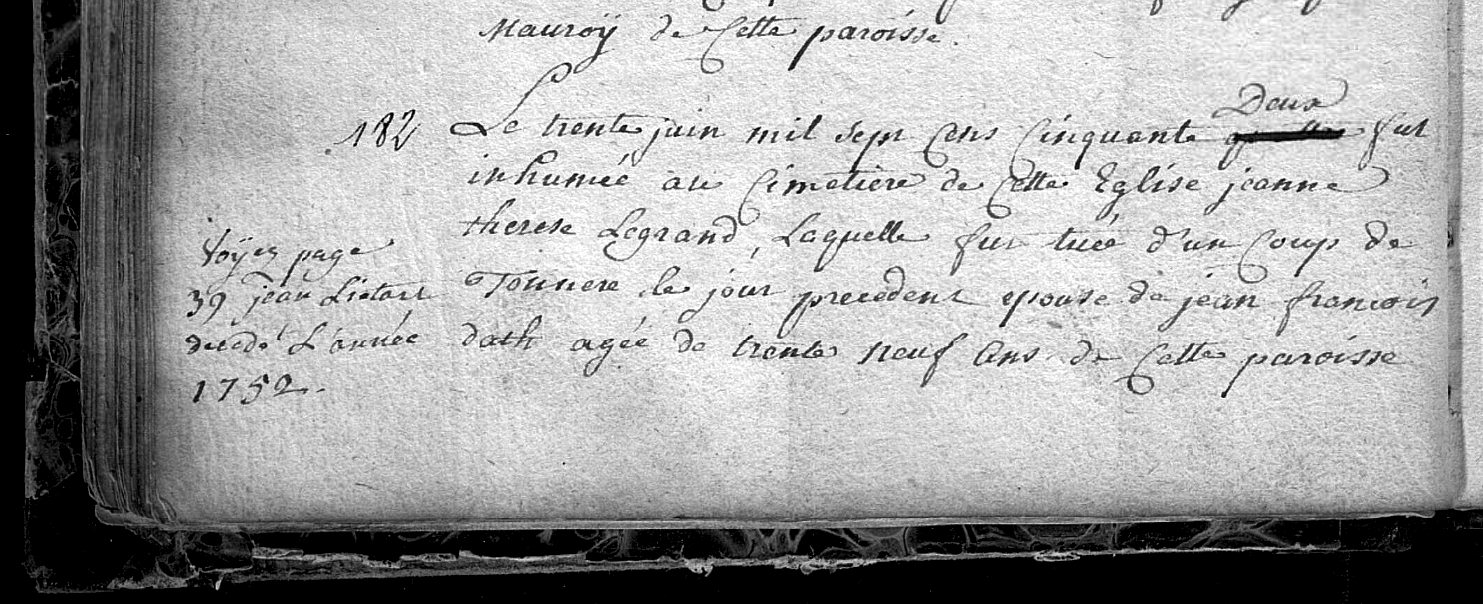 Mauroÿ de Cette paroisse.
182 Le trente juin mil sept Cens Cinquante Deux fut
inhumée au Cimetiere de Cette Eglise jeanne
therese Legrand, Laquelle fut tuée d'un Coup de
Tonnere le jour precedent epouse de jean francois
dath agée de trente neuf Ans de Cette paroisse
Voÿez page
39 jean Lietart
decedé L'année
1752.